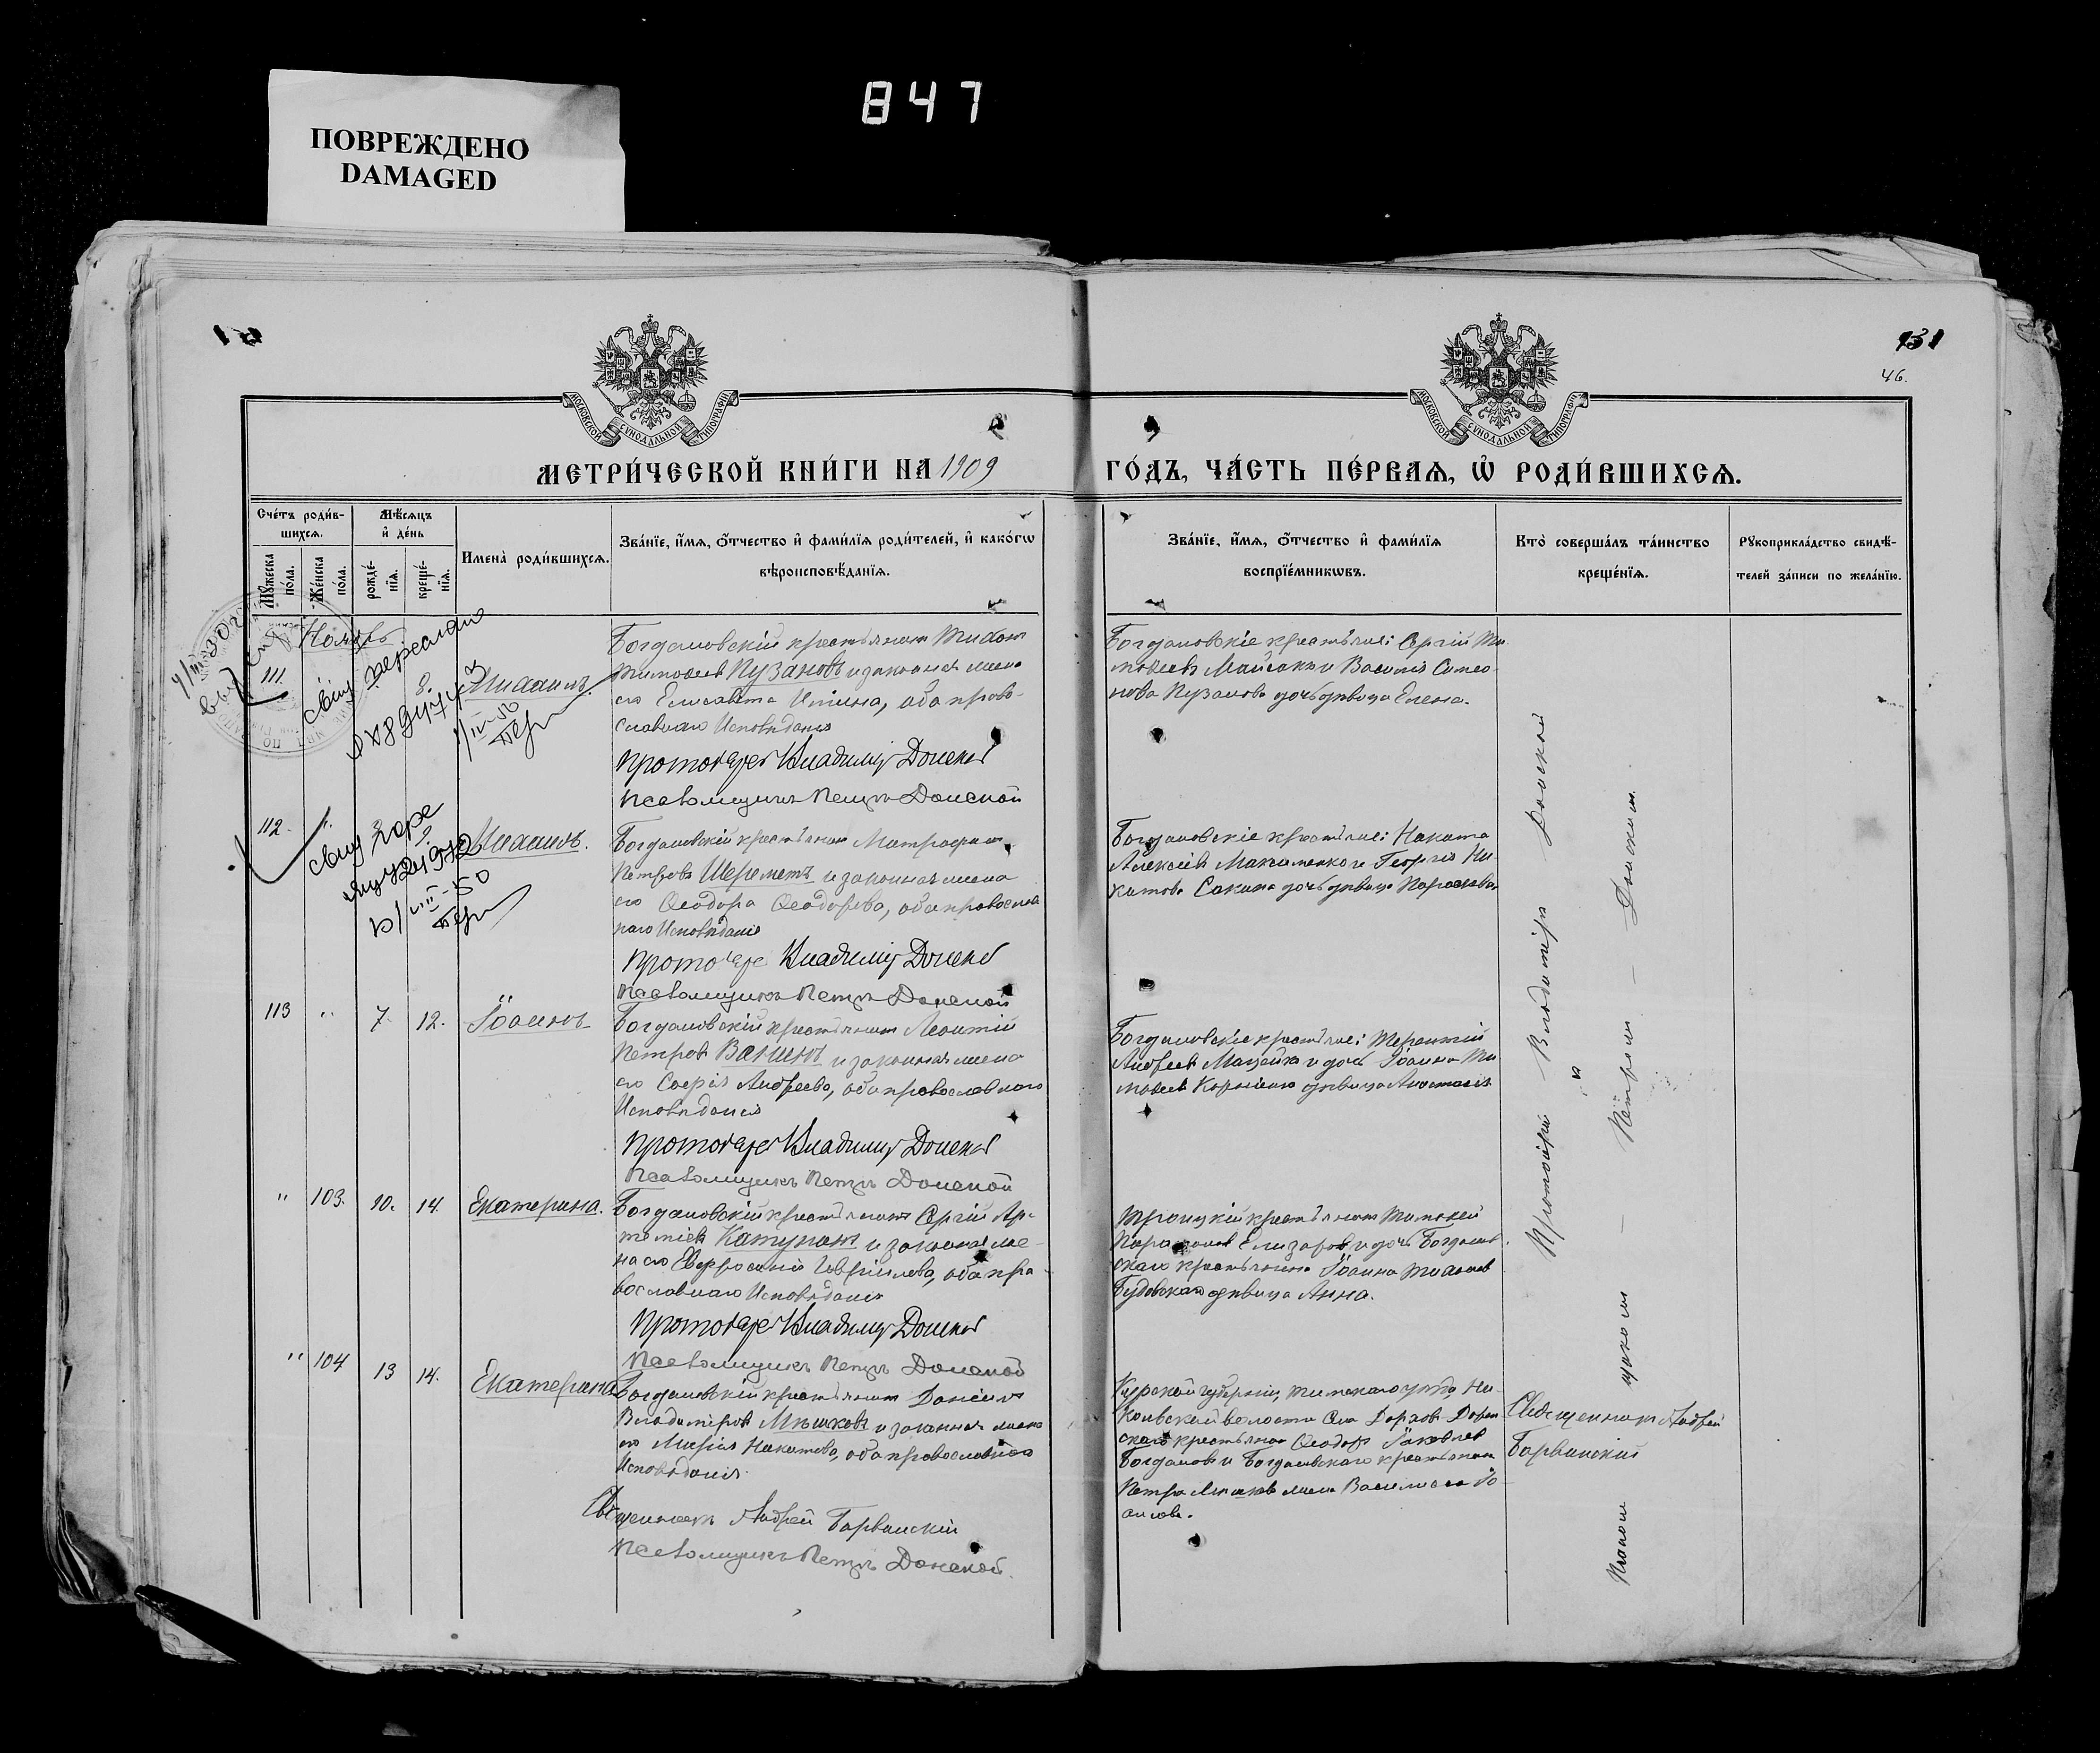 847
ПОВРЕЖДЕНО
DAMAGED
131
46.
МОСКОВСКОЙ СУНОДАЛЬНОЙ ТИПОГРАФІИ
МОСКОВСКОЙ СУНОДАЛЬНОЙ ТИПОГРАФІИ
МЕТРИ́ЧЕСКОЙ КНИ́ГИ НА 1909
ГО́ДЪ, ЧА́СТЬ ПЕ́РВАЯ, Ѡ҆ РОДИ́ВШИХСЯ.
Сче́тъ роди́в-
шихся.
Мꙋ́жеска по́ла.
Же́нска по́ла.
Мѣ́сяцъ
и҆ де́нь
рожде́-
нїя.
креще́-
нїя.
Имена̀ роди́вшихся.
Зва́нїе, и҆́мя, ѻ҆́тчество и҆ фами́лїя роди́телей, и҆ како́гѡ
вѣроисповѣ́данїя.
Зва́нїе, и҆́мя, ѻ҆́тчество и҆ фами́лїя
воспрїе́мникѡвъ.
Кто̀ соверша́лъ та́инство
креще́нїя.
Рꙋкоприкла́дство свидѣ́-
телей за́писи по жела́нїю.
Ноябрь
111.
Михаилъ
Богдановскій крестьянинъ Тихонъ
Тимофеевъ Пузановъ и законная жена
его Елисавета Ильина, оба право-
славнаго Исповѣданія
Протоіерей Владиміръ Донской
Псаломщикъ Петръ Донской
Богдановскіе крестьяне: Сергій Ти-
мофеевъ Майсакъ и Василія Симео-
нова Пузанова дочь дѣвица Елена.
112.
Михаилъ.
Богдановскій крестьянинъ Митрофанъ
Петровъ Шереметъ и законная жена
его Ѳеодора Ѳеодорова, оба православ-
наго Исповѣданія
Протоіерей Владиміръ Донской
Псаломщикъ Петръ Донской
Богдановскіе крестьяне: Никита
Алексѣевъ Максименко и Георгія Ни-
китова Сакина дочь дѣвица Параскева
113
"
7.
12.
Іоаннъ
Богдановскій крестьянинъ Леонтій
Петровъ Ванинъ и законная жена
его Софія Андреева, оба православнаго
Исповѣданія
Протоіерей Владиміръ Донской
Псаломщикъ Петръ Донской
Богдановскіе крестьяне: Терентій
Андреевъ Мацейко и дочь Іоанна Ти-
мофеева Корніенко дѣвица Анастасія
"
103.
10.
14.
Екатерина.
Богдановскій крестьянинъ Сергій Ар-
теміевъ Катунинъ и законная же-
на его Евфросинія Гавріилова, оба пра-
вославнаго Исповѣданія
Протоіерей Владиміръ Донской
Псаломщикъ Петръ Донской
Троицкій крестьянинъ Тимофей
Парамоновъ Елизаровъ и дочь Богданов-
скаго крестьянина Іоанна
Будовскаго дѣвица Анна.
"
104
13
14.
Екатерина
Богдановскій крестьянинъ Даніилъ
Владиміровъ Мѣшковъ и законная жена
его Марія Никитова, оба православнаго
Исповѣданія.
Священникъ Андрей Барвинскій
Псаломщикъ Петръ Донской.
Курской губерніи, Тимскаго уѣзда, Ни-
кольской волости
скаго крестьянинъ Ѳеодоръ Іаковлев
Богдановъ и Богдановскаго крестьянина
Петра Мѣшкова жена Василисса Іо-
аннова.
Протоіерей Владиміръ Донской
и
Псаломщикомъ — Петромъ — Донскимъ.
Священникъ Андрей
Барвинскій